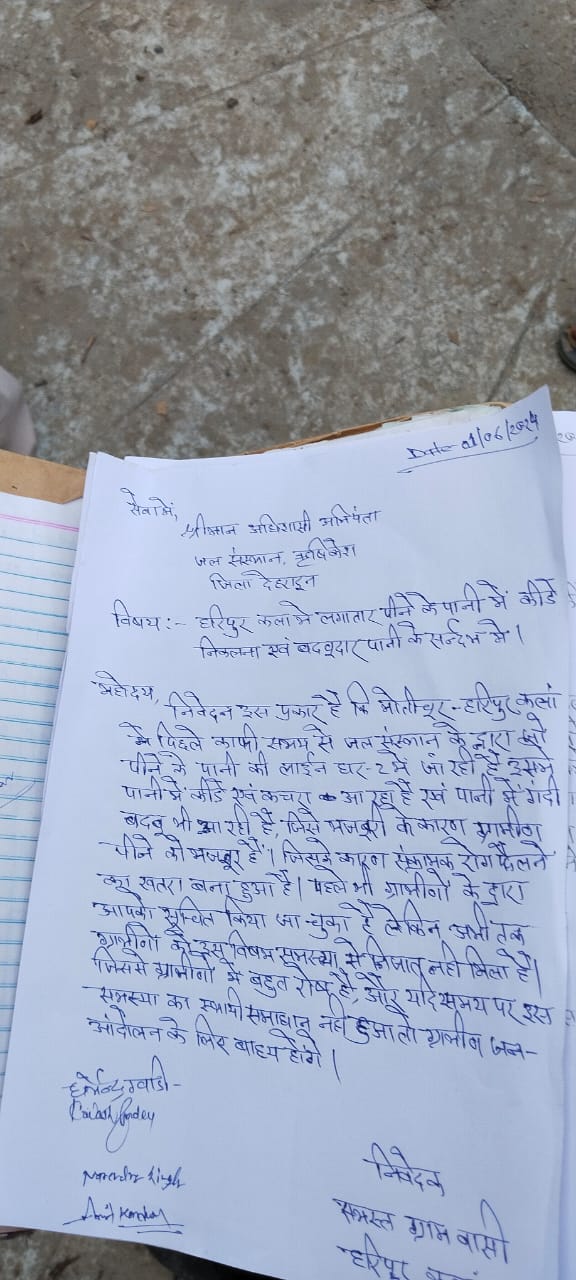 Date 01/06/2024
सेवा में,
श्रीमान अधिशासी अभियंता
जल संस्थान, ऋषिकेश
जिला देहरादून
विषय :- हरिपुर कलां में लगातार पीने के पानी में कीडे
निकलना एवं बदबूदार पानी के सर्न्दभ में।
महोदय,
निवेदन इस प्रकार है कि मोतीचूर - हरिपुर कलां
में पिछले काफी समय से जल संस्थान के द्वारा जो
पीने के पानी की लाईन घर-2 में जा रही है इसमें
पानी में कीडे एवं कचरा आ रहा है एवं पानी में गंदी
बदबू भी आ रही है, जिसे मजबूरी के कारण ग्रामीण
पीने को मजबूर है। जिसके कारण संक्रामक रोग फैलने
का खतरा बना हुआ है। पहले भी ग्रामीणों के द्वारा
आपको सूचित किया जा चुका है लेकिन अभी तक
ग्रामीणों को इस विषम समस्या से निजात नहीं मिला है।
जिससे ग्रामीणों में बहुत रोष है, और यदि समय पर इस
समस्या का स्थायी समाधान नहीं हुआ तो ग्रामीण जन-
आंदोलन के लिए बाध्य होंगे।
Pandey
निवेदक
Narendra Singh
समस्त ग्राम वासी
Amit
हरिपुर कलां